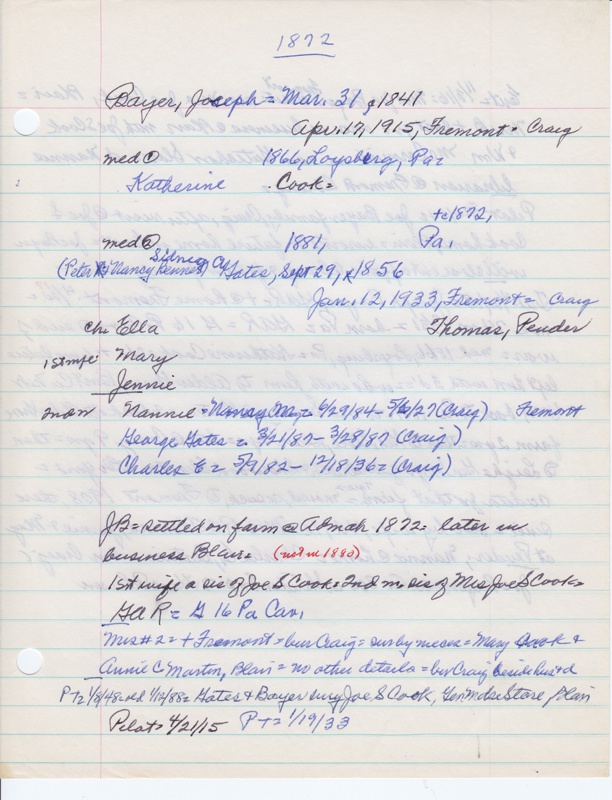 1872
Bayer, Joseph = Mar. 31, 1841
Apr. 17, 1915, Fremont = Craig
med ① 1866, Loysberg, Pa =
Katherine Cook =
+ c 1872,
med ② 1881, Pa,
Sidney
(Peter & Nancy Kenner) Gates, Sept 29, 1856
Jan. 12, 1933, Fremont = Craig
Ch = Ella Thomas, Pender
1st mge Mary
Jennie
Nannie = Nancy = 6/29/84 - 27 (Craig) Fremont
George Gates = 3/21/87 - 3/28/87 (Craig)
Charles C = 5/9/82 - 12/18/36 = (Craig)
JB = settled on farm @ Admah 1872 = later in
business Blair = (not in 1880)
1st wife a sis of Joe S Cook = 2nd m sis of Mrs Joe S Cook =
GAR = G 16 Pa Cav,
Mrs #2 = + Fremont = bur Craig = sur by nieces = Mary Cook &
Annie C Martin, Blair = no other details = bur Craig beside husbd
P+ 2 1/8/48 = Gates & Bayer Joe S Cook, Gen Mdse Store Blair
Pilot = 4/21/15 P + = 1/19/33